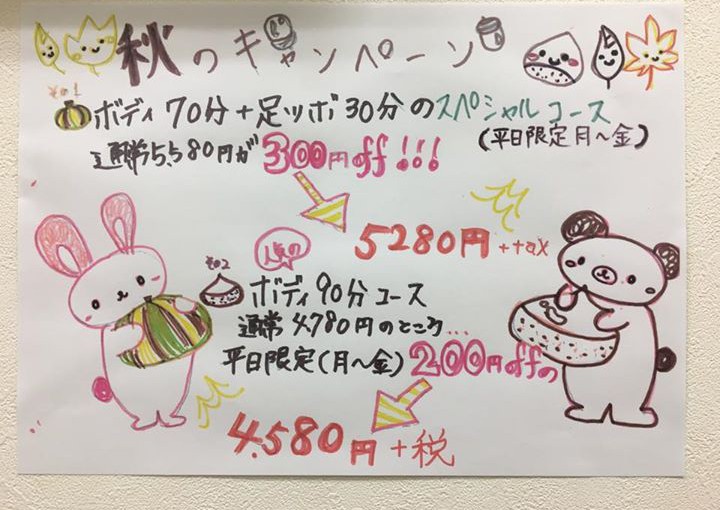 秋のキャンペーン
その1
ボディ70分+足ツボ30分のスペシャルコース
(平日限定月〜金)
通常5,580円が300円off!!!
5280円+tax
人気の
その2
ボディ90分コース
通常4.780円のところ...
平日限定(月〜金)200円offの
4.580円+税